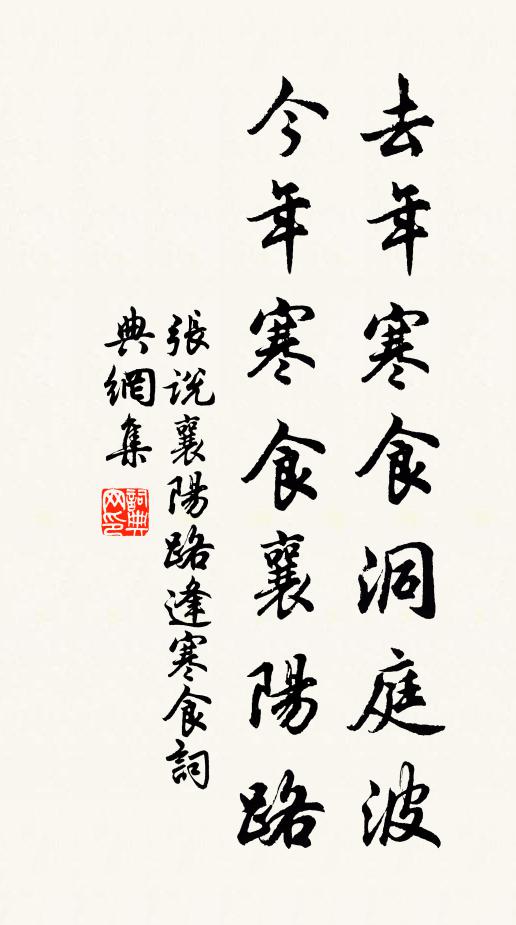 去年寒食洞庭波
今年寒食襄陽路
張說襄陽路逢寒食詞
典網集
詞典
网印